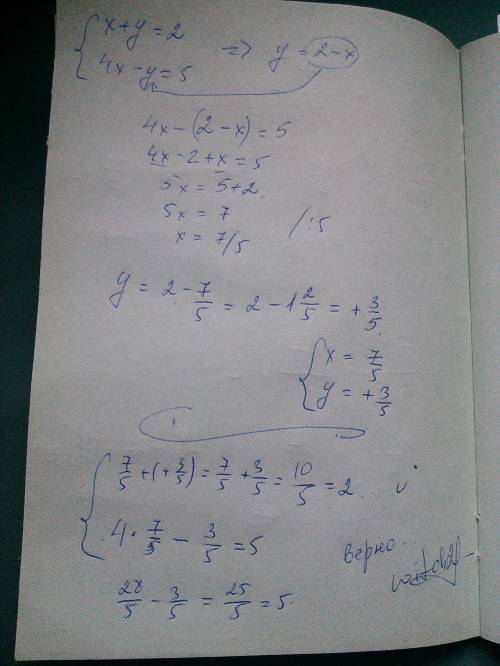 { x + y = 2
4x - y = 5 => y = 2 - x
4x - (2 - x) = 5
4x - 2 + x = 5
5x = 5 + 2
5x = 7 / :5
x = 7/5
y = 2 - 7/5 = 2 - 1 2/5 = + 3/5
{ x = 7/5
y = + 3/5
{ 7/5 + (+ 3/5) = 7/5 + 3/5 = 10/5 = 2 v
4 · 7/5 - 3/5 = 5
верно.
28/5 - 3/5 = 25/5 = 5.